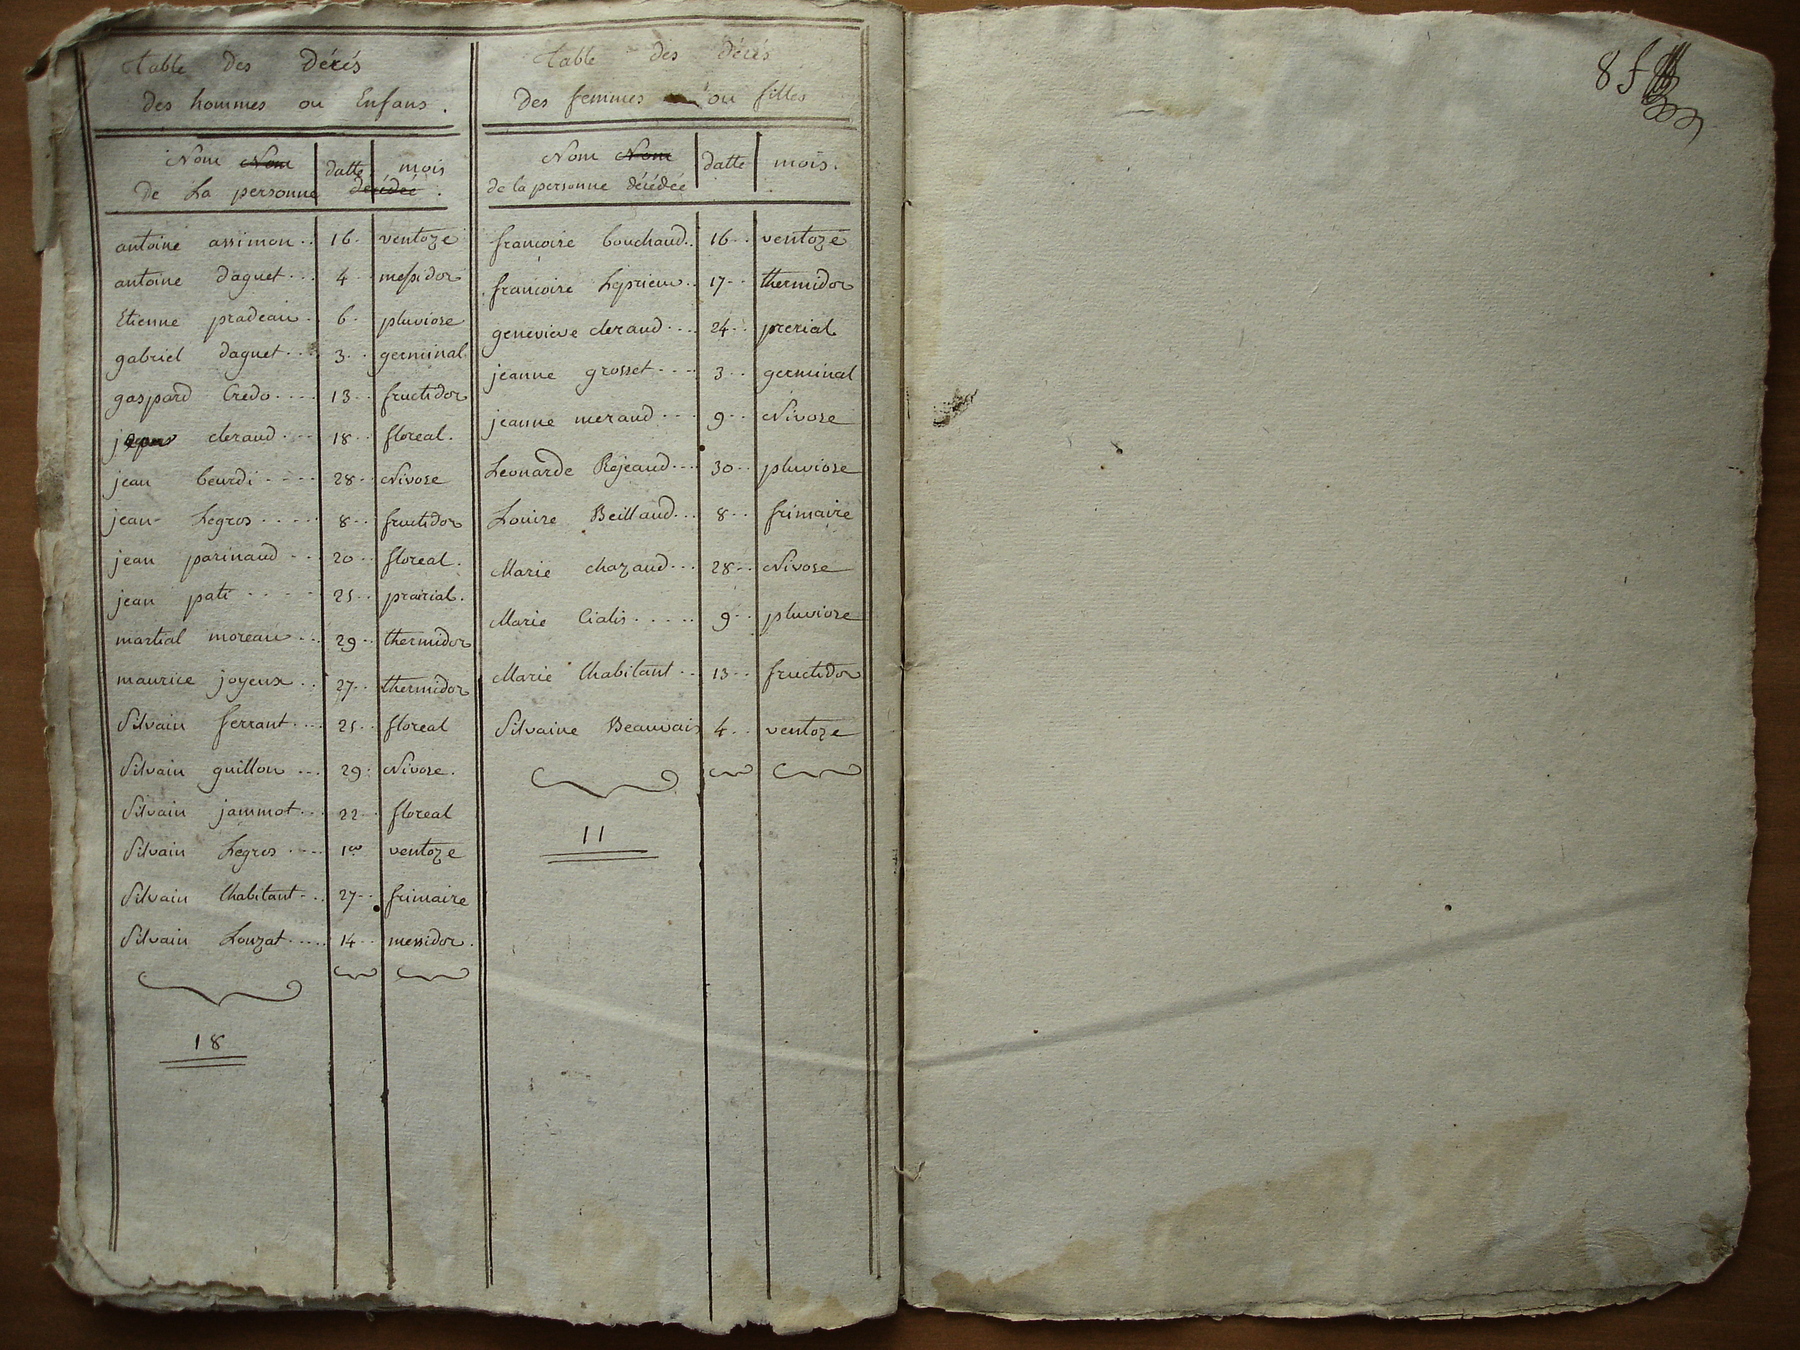 table des décés
des hommes ou Enfans.
Nom Nom datte mois
de La personne décédée.
antoine assimon.. 16. ventoze
antoine daguet... 4.. messidor
Etienne pradeau.. 6. pluviose
gabriel daguet... 3.. germinal
gaspard Credo.... 13.. fructidor
cleraud... 18.. floreal.
jean beurdi.... 28.. Nivose
jean Legros..... 8.. fructidor
jean parinaud... 20.. floreal.
jean pati.... 25.. prairial.
martial moreau... 29.. thermidor
maurice joyeux.. 27.. thermidor
Silvain ferrant... 25.. floreal
Silvain guillon... 29. Nivose.
Silvain jammot... 22.. floreal
Silvain Legros.... 1er ventoze
Silvain Chabitant... 27.. frimaire
Silvain Louzat..... 14.. messidor.
18
table des décés
des femmes ou filles
Nom Nom datte mois.
de la personne décédée
francoise bouchaud.. 16.. ventoze
francoise Leprieur.. 17.. thermidor
genevieve cleraud.... 24.. prerial
jeanne grosset.... 3.. germinal
jeanne meraud... 9.. Nivose
Leonarde Rejeaud... 30.. pluviose
Louise Beillaud... 8.. frimaire
Marie chazaud... 28.. Nivose
Marie Cialis..... 9.. pluviose
Marie Chabitant.. 13.. fructidor
Silvaine Beauvais 4.. ventoze
11
8 f